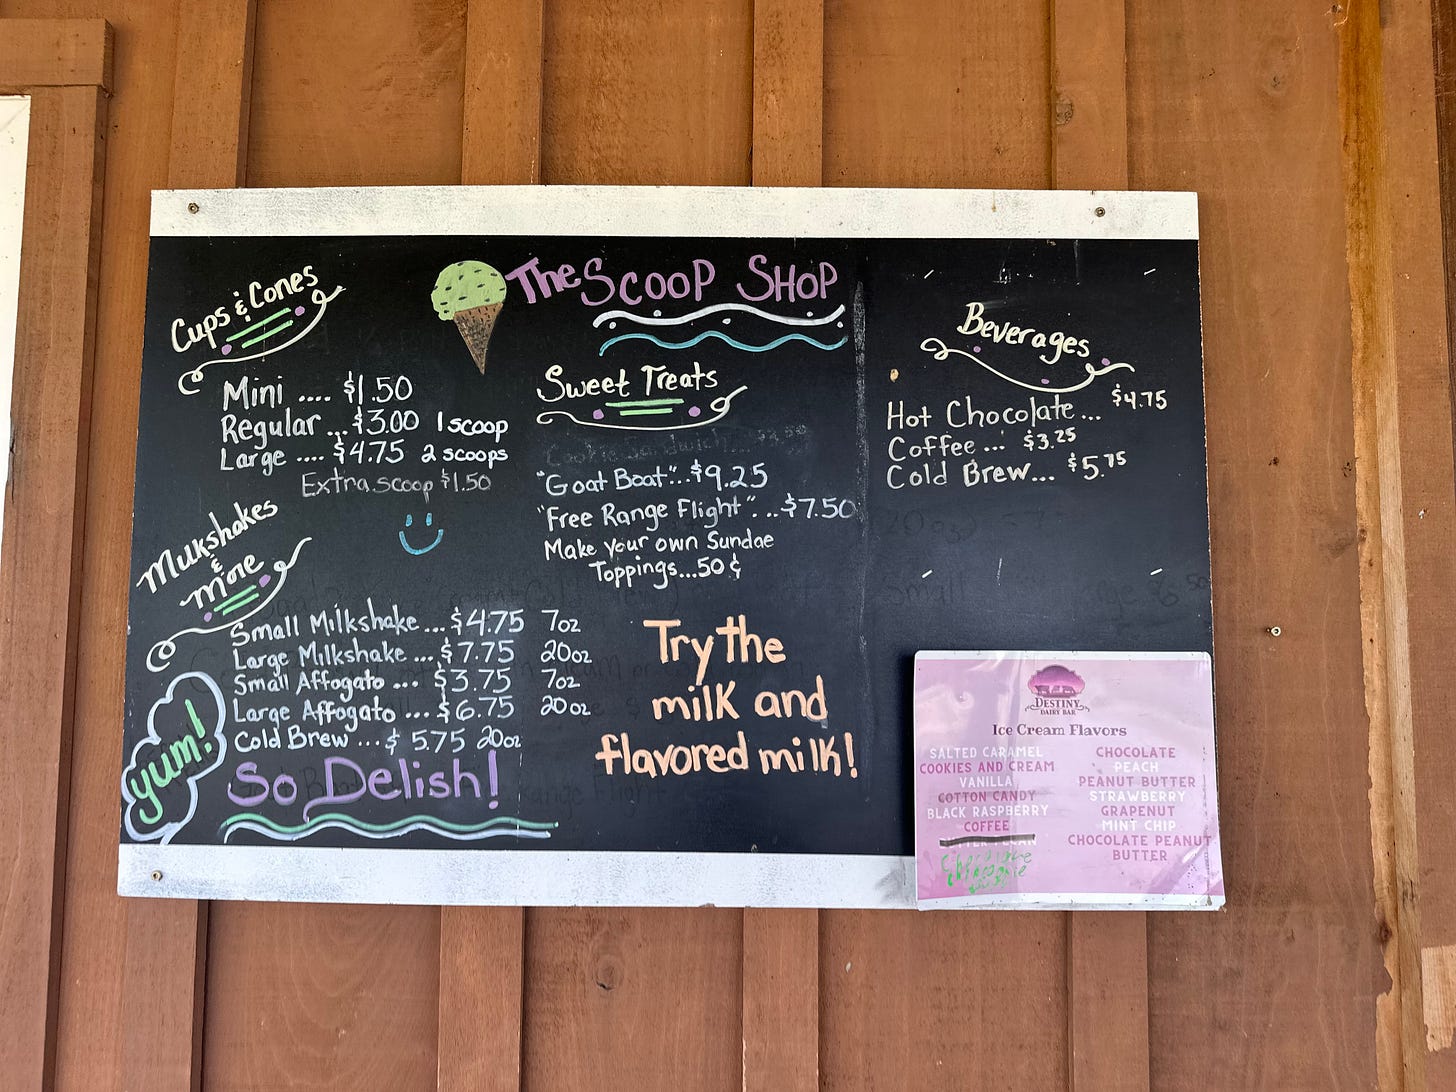 The Scoop Shop
Cups & Cones
Mini .... $1.50
Regular ... $3.00 1 scoop
Large .... $4.75 2 scoops
Extra scoop $1.50
Milkshakes
&
more
Small Milkshake ... $4.75 7oz
Large Milkshake ... $7.75 20oz
Small Affogato ... $3.75 7oz
Large Affogato .... $6.75 20oz
Cold Brew ... $5.75 20oz
yum!
So Delish!
Sweet Treats
Cookie Sandwich...
"Goat Boat"...$9.25
"Free Range Flight"...$7.50
Make your own Sundae
Toppings...50¢
Try the
milk and
flavored milk!
Beverages
Hot Chocolate... $4.75
Coffee ... $3.25
Cold Brew... $5.75
DESTINY
DAIRY BAR
Ice Cream Flavors
SALTED CARAMEL
COOKIES AND CREAM
VANILLA
COTTON CANDY
BLACK RASPBERRY
COFFEE
CHOCOLATE
PEACH
PEANUT BUTTER
STRAWBERRY
GRAPENUT
MINT CHIP
CHOCOLATE PEANUT
BUTTER